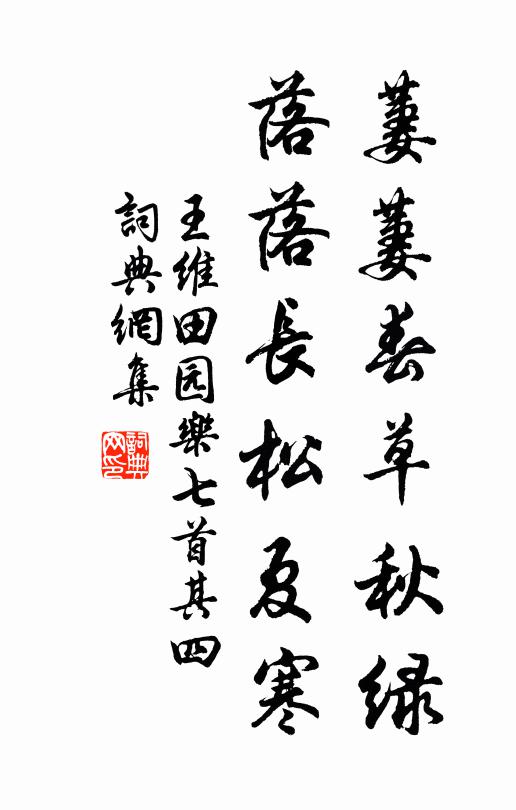 萋萋春草秋绿
落落長松夏寒
王維田园樂七首其四
詞典網集
詞典
网印